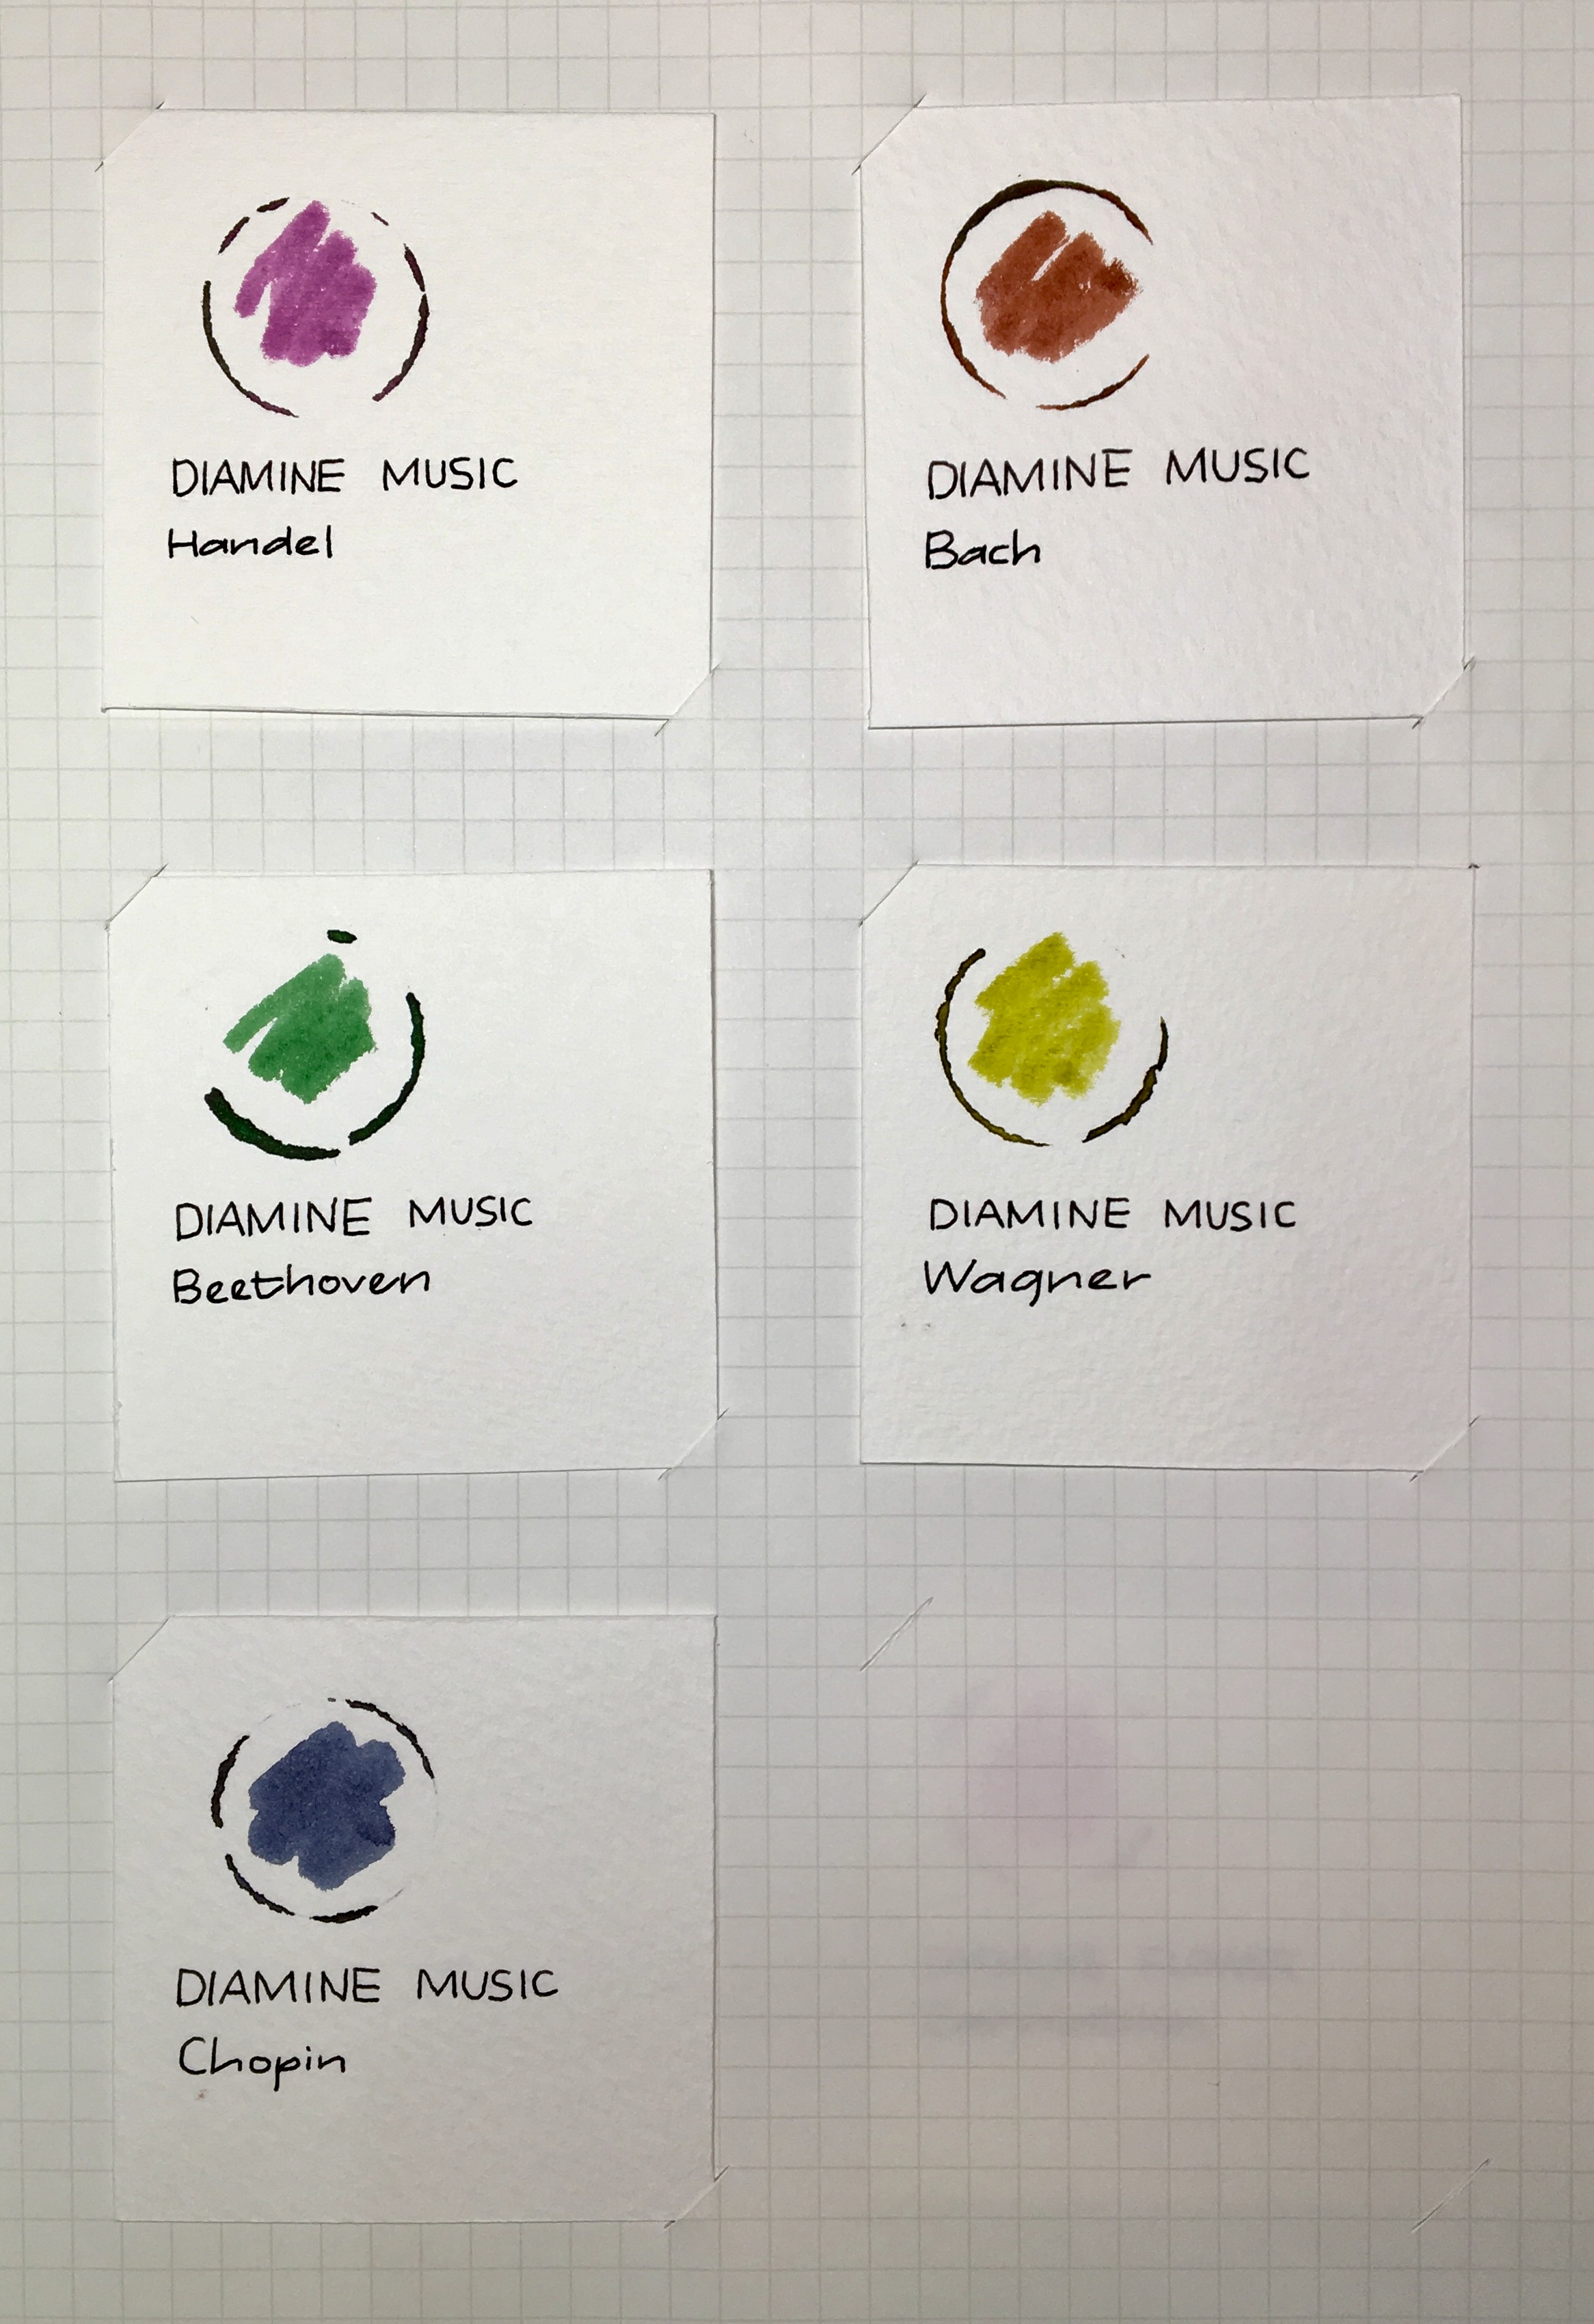 DIAMINE MUSIC
Handel
DIAMINE MUSIC
Bach
DIAMINE MUSIC
Beethoven
DIAMINE MUSIC
Wagner
DIAMINE MUSIC
Chopin